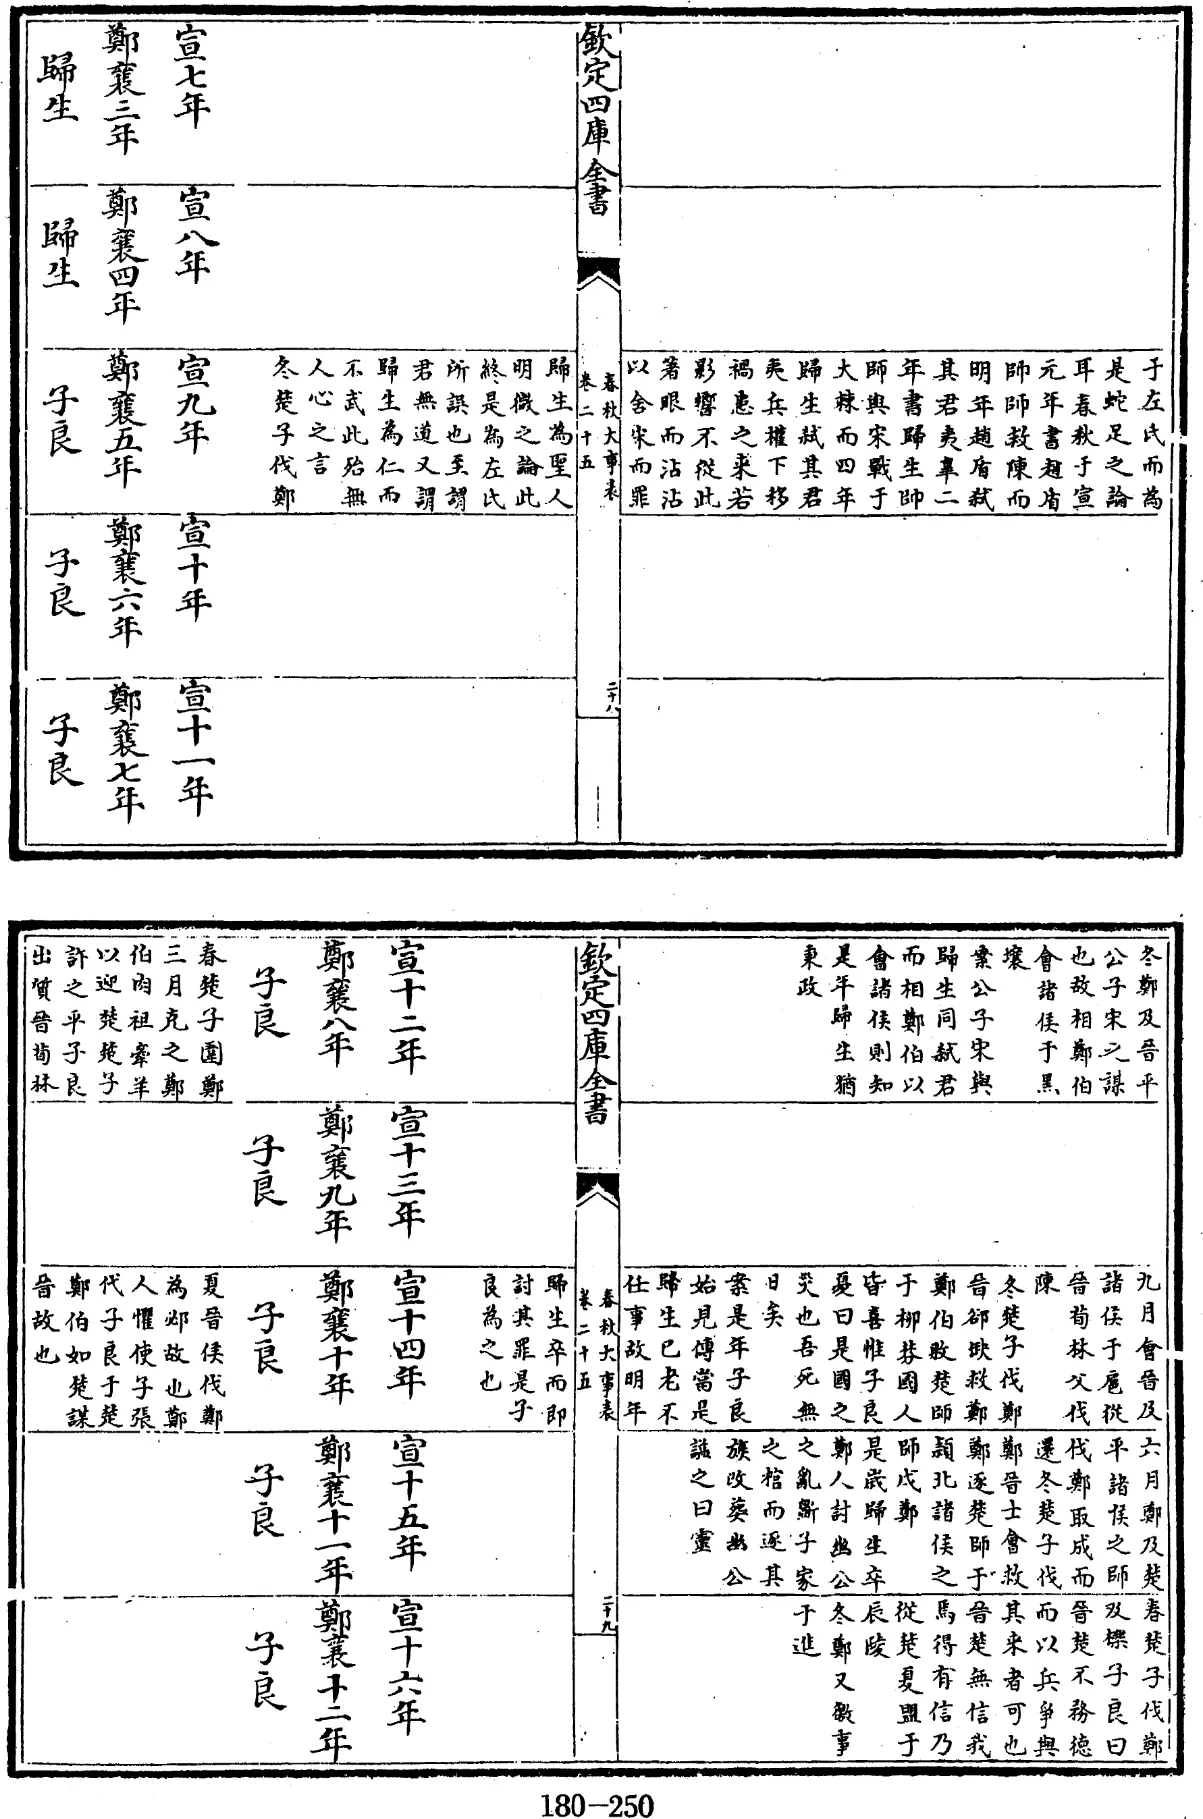 于左氏而為
是蛇足之論
耳春秋于宣
元年書趙盾
帥師救陳而
明年趙盾弒
其君夷皋二
年書歸生帥
師與宋戰于
大棘而四年
歸生弒其君
夷兵權下移
禍患之來若
影響不從此
著眼而沾沾
以舍宋而罪
欽定四庫全書
春秋大事表
卷二十五
二十八
歸生為聖人
明微之論此
終是為左氏
所誤也至謂
君無道又謂
歸生為仁而
不武此殆無
人心之言
冬楚子伐鄭
宣七年
鄭襄三年
歸生
宣八年
鄭襄四年
歸生
宣九年
鄭襄五年
子良
宣十年
鄭襄六年
子良
宣十一年
鄭襄七年
子良
冬鄭及晉平
公子宋之謀
也故相鄭伯
會諸侯于黑
壤
案公子宋與
歸生同弒君
而相鄭伯以
會諸侯則知
是年歸生猶
秉政
九月會晉及
諸侯于扈從
晉荀林父伐
陳
冬楚子伐鄭
晉郤缺救鄭
鄭伯敗楚師
于柳棼國人
皆喜惟子良
憂曰是國之
災也吾死無
日矣
案是年子良
始見傳當是
歸生已老不
仕事故明年
六月鄭及楚
平諸侯之師
伐鄭取成而
還冬楚子伐
鄭晉士會救
鄭逐楚師于
潁北諸侯之
師戍鄭
是歲歸生卒
鄭人討幽公
之亂斲子家
之棺而逐其
族改葬幽公
諡之曰靈
春楚子伐鄭
及櫟子良曰
晉楚不務德
而以兵爭與
其來者可也
晉楚無信我
焉得有信乃
從楚夏盟于
辰陵
冬鄭又徼事
于進
欽定四庫全書
春秋大事表
卷二十五
二十九
歸生卒而即
討其罪是子
良為之也
宣十二年
鄭襄八年
子良
春楚子圍鄭
三月克之鄭
伯肉袒牽羊
以迎楚楚子
許之平子良
出質晉荀林
宣十三年
鄭襄九年
子良
宣十四年
鄭襄十年
子良
夏晉侯伐鄭
為邲故也鄭
人懼使子張
代子良于楚
鄭伯如楚謀
晉故也
宣十五年
鄭襄十一年
子良
宣十六年
鄭襄十二年
子良
180-250